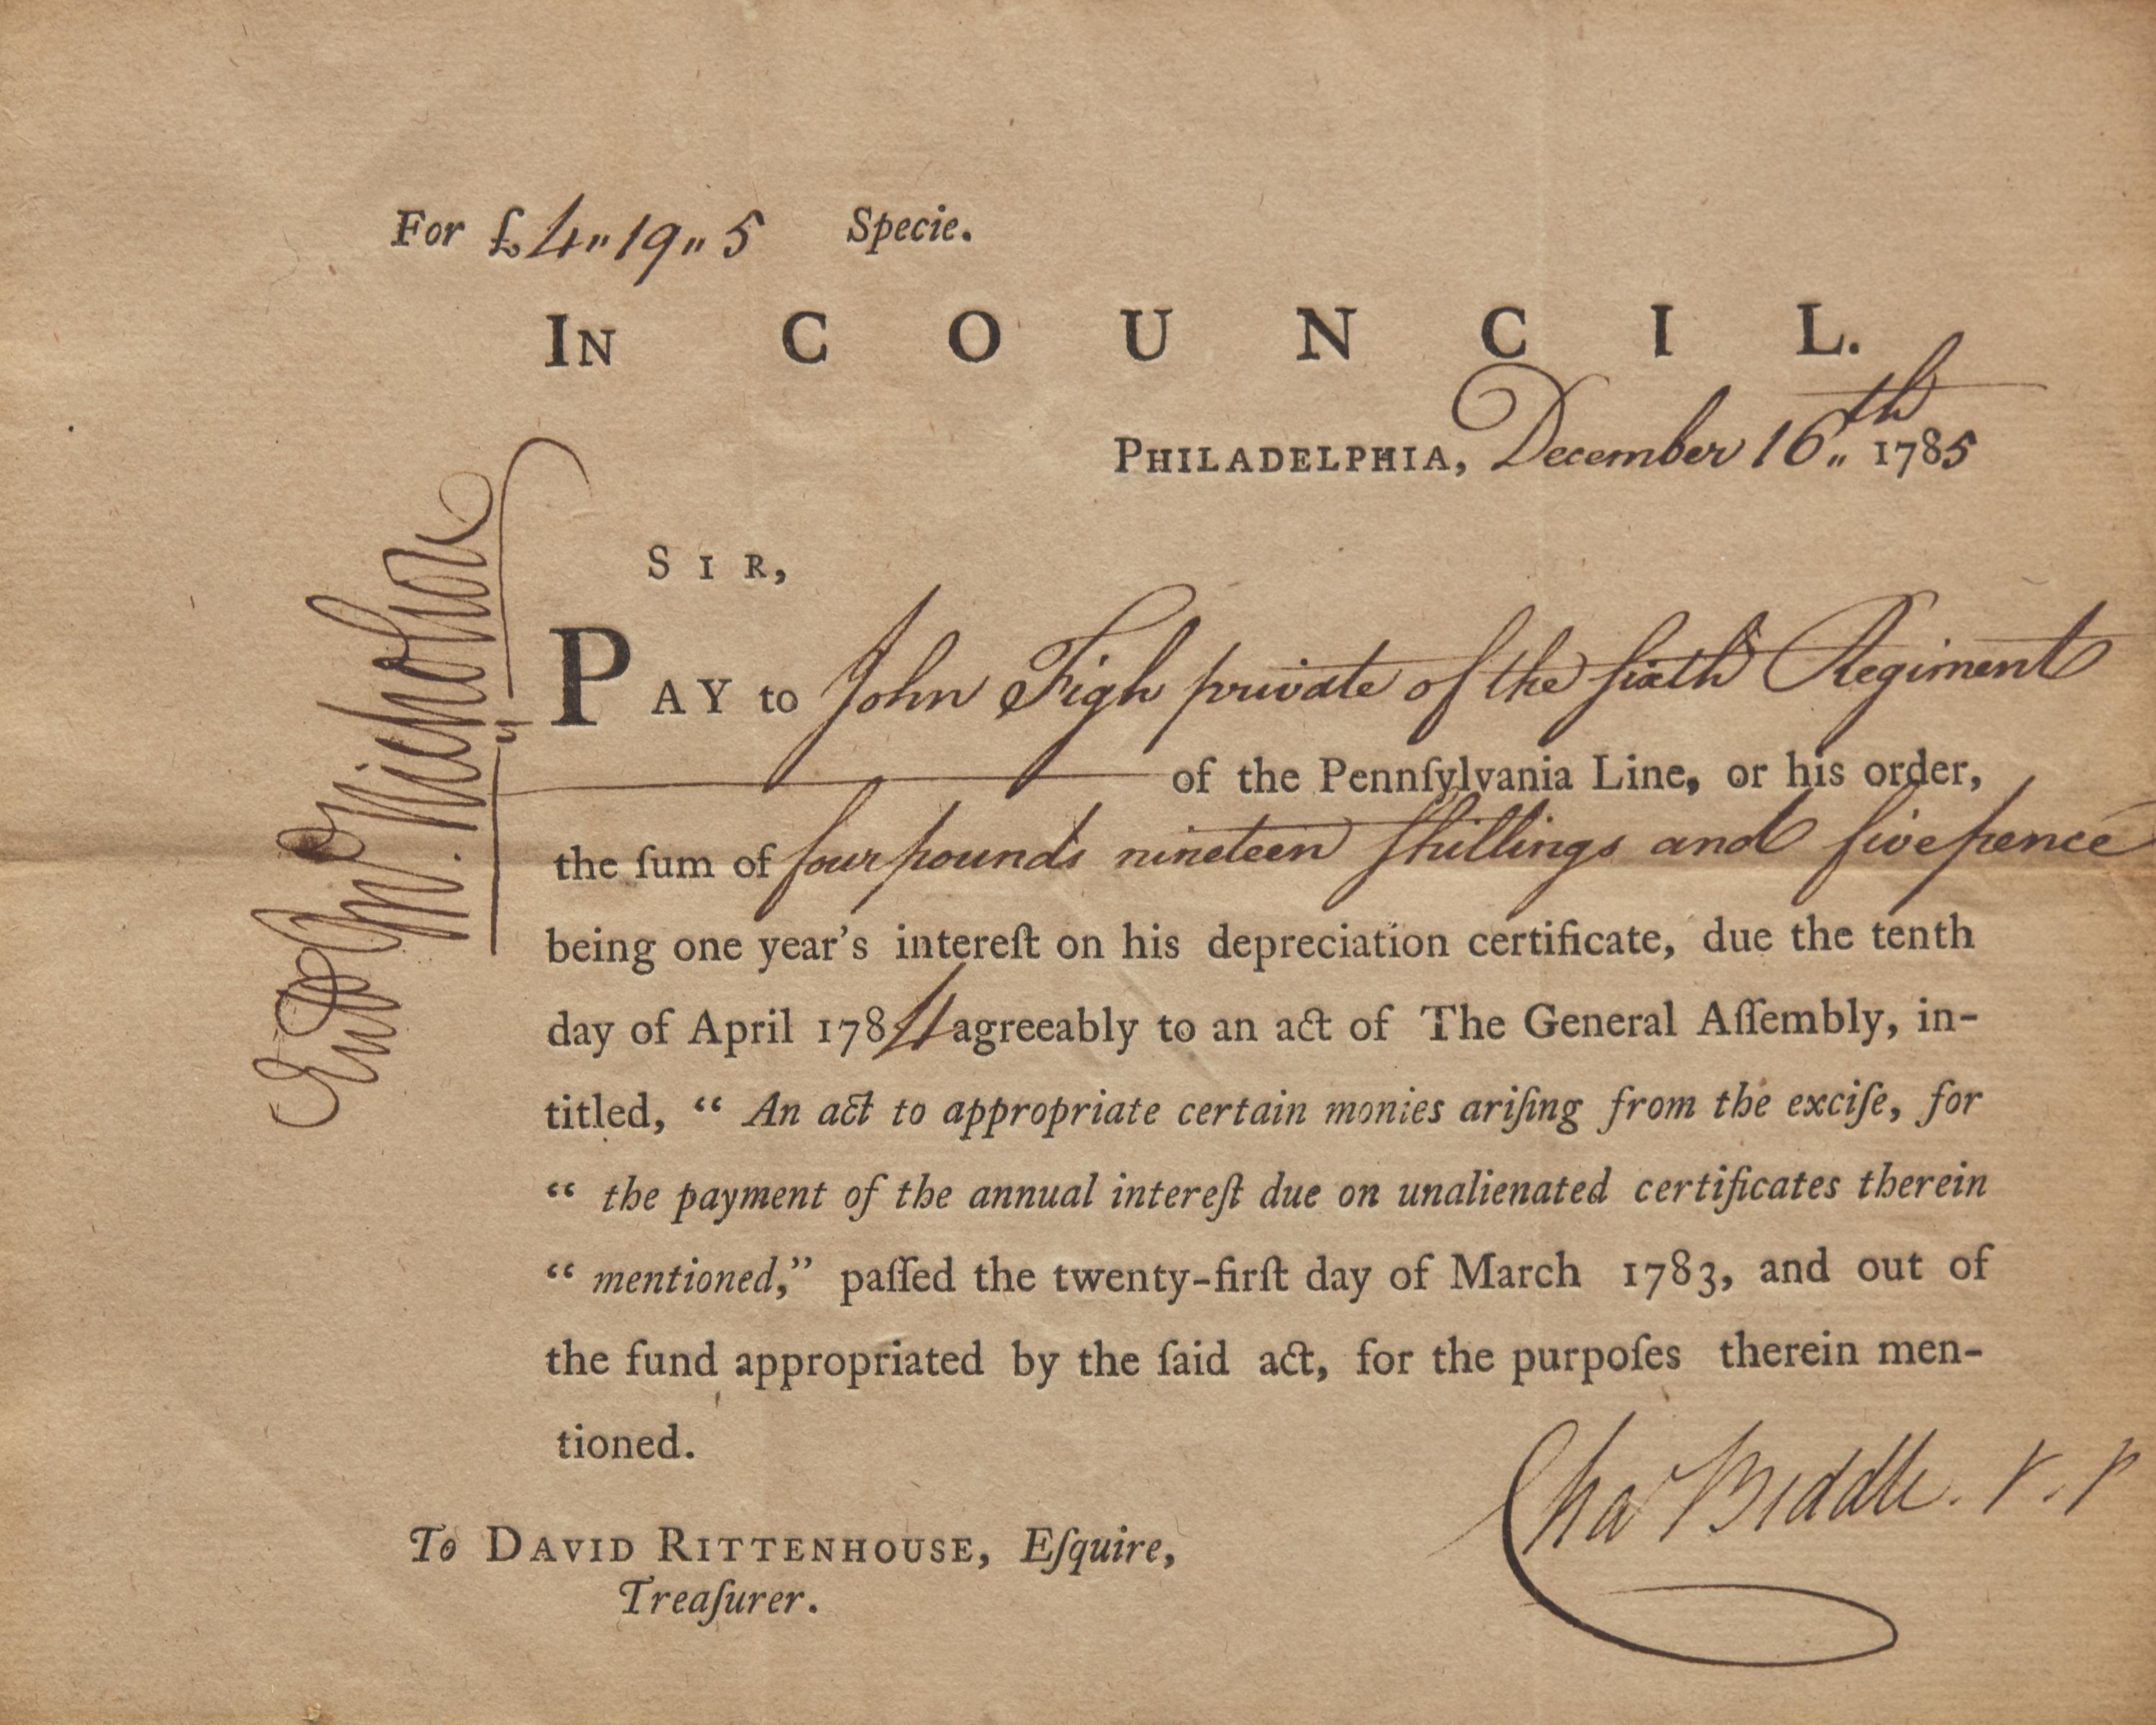 For £4„19„5 Specie.
IN COUNCIL.
PHILADELPHIA, December 16„th 1785
SIR,
PAY to John Figh private of the sixth Regiment
of the Pennſylvania Line, or his order,
the ſum of four pounds nineteen ſhillings and five pence
being one year's intereſt on his depreciation certificate, due the tenth
day of April 1784 agreeably to an act of The General Aſſembly, in-
titled, “ An act to appropriate certain monies ariſing from the exciſe, for
“ the payment of the annual intereſt due on unalienated certificates therein
“ mentioned,” paſſed the twenty-firſt day of March 1783, and out of
the fund appropriated by the ſaid act, for the purpoſes therein men-
tioned.
Chas Biddle. V. P
To DAVID RITTENHOUSE, Eſquire,
Treaſurer.
Entd Jno. Nicholson